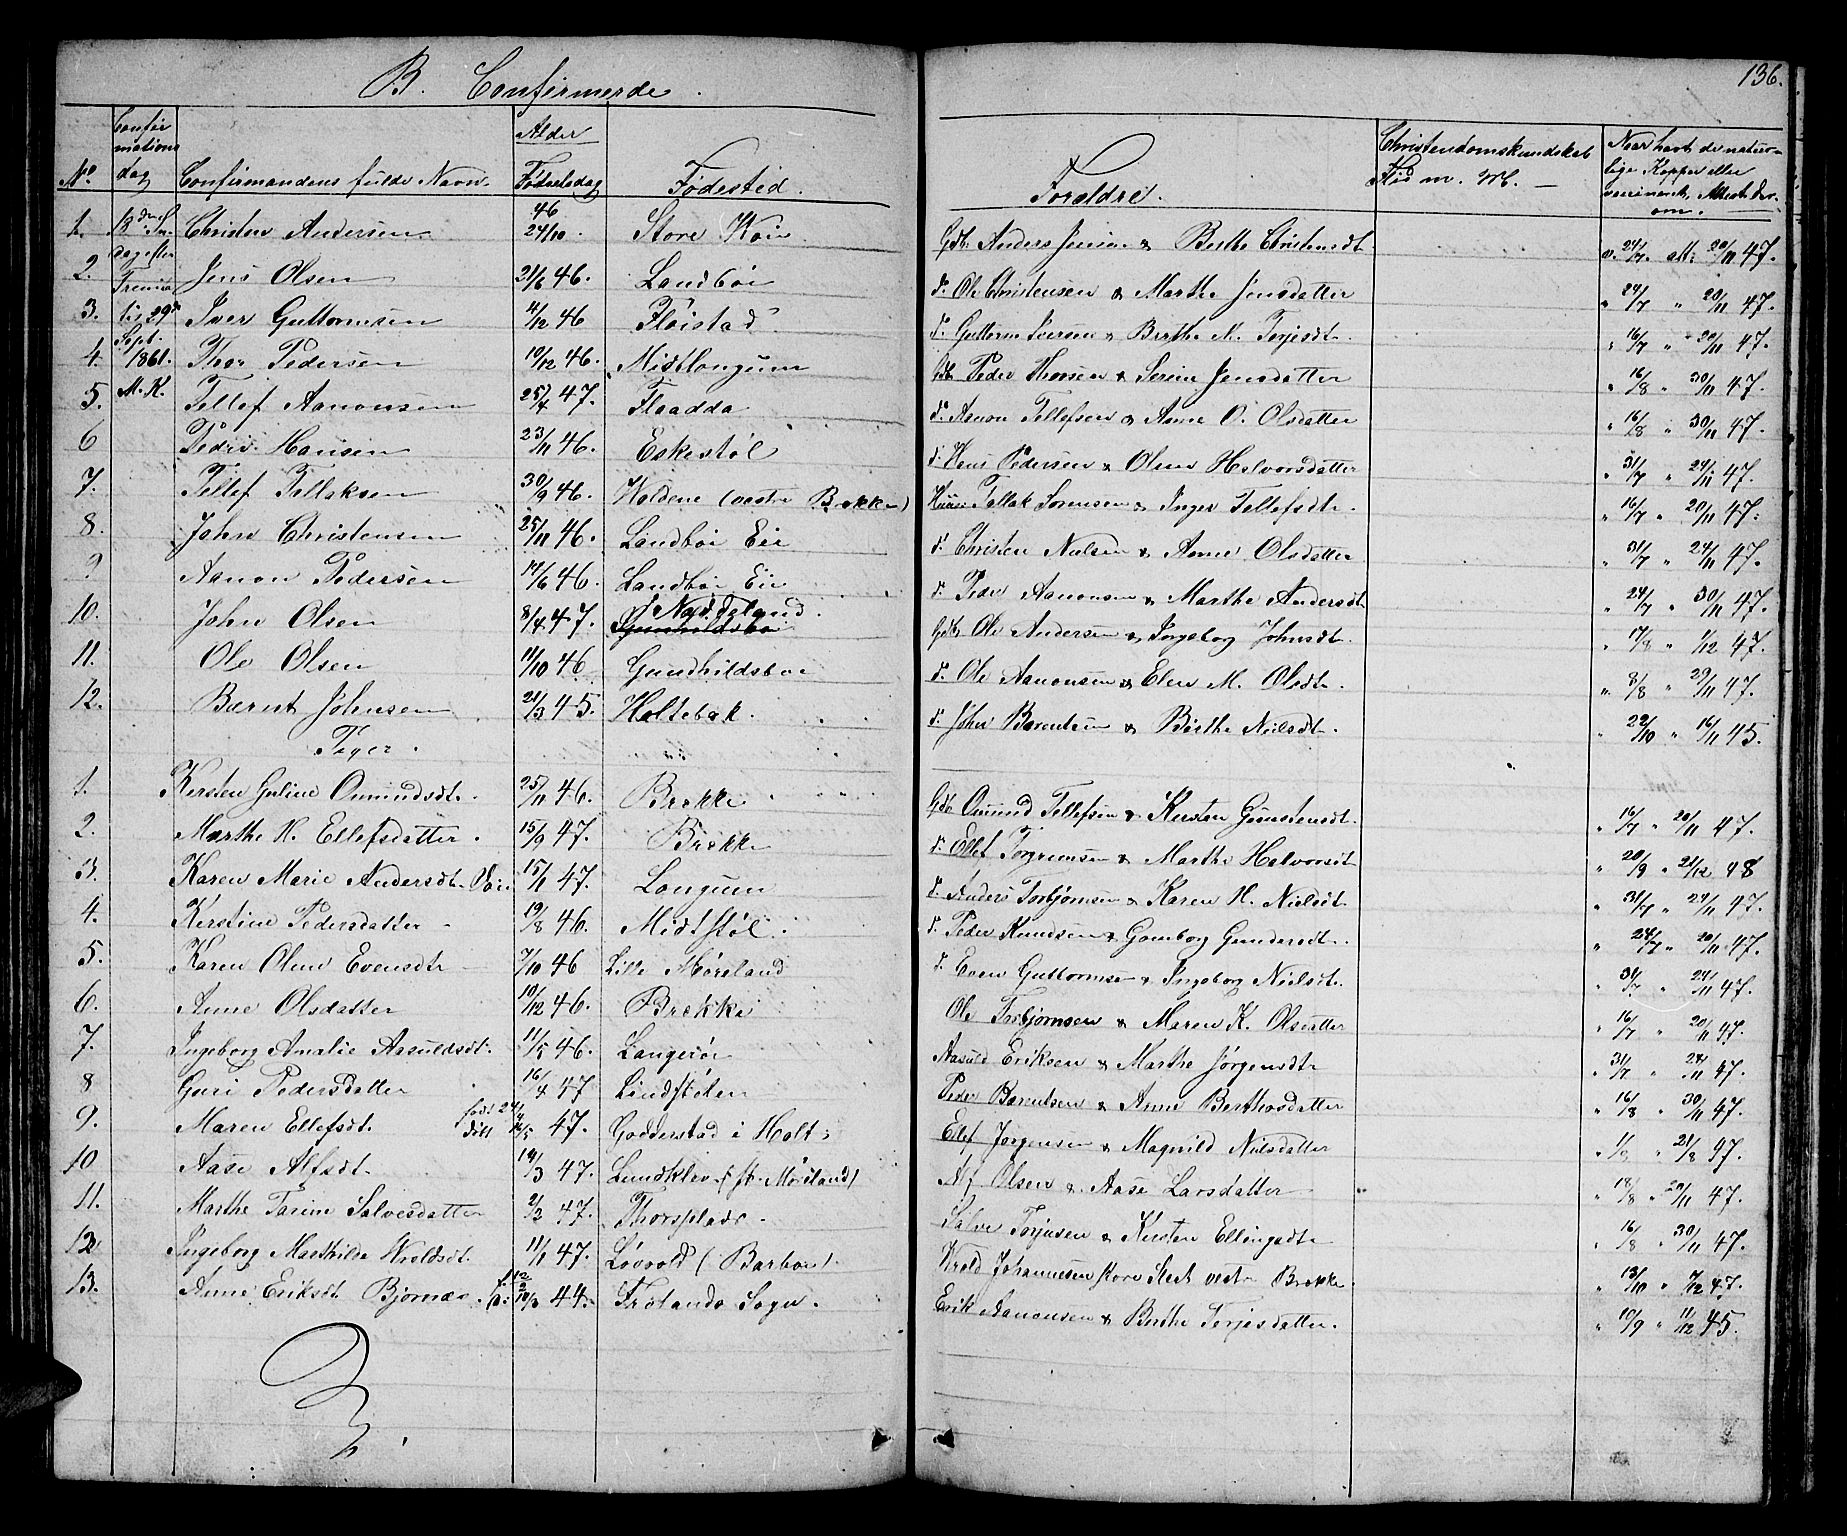 136.
B. Confirmerde.
No. Confirmations dag Confirmandens fulde Navn. Alder Fødselsdag Fødested. Forældre. Christendomskundskab Flid m. M. — Naar havt de naturlige Kopper eller vaccineret, Attest derom.
1. 18de Sø- Christen Andersen 46 24/10. Store Køie Gdb. Anders Jensen & Berthe Christensdt. v. 24/7 att: 20/11 47.
2. dag efter Jens Olsen 21/6 46. Landbøe d. Ole Christensen & Marthe Jensdatter " 24/7 " 20/11 47.
3. 29de Iver Guttormsen 4/12 46 Fløistad d. Guttorm Iversen & Berthe M. Terjesdt. " 16/7 " 20/11 47.
4. Sept. 1861. Thor Pedersen 19/12 46. Midtlongum Gdb. Peder Thorsen & Serine Jensdatter " 16/8 " 30/11 47.
5. M. K. Tellef Aanonsen 25/4 47. Flaadda d. Aanon Tellefsen & Anne O. Olsdatter " 16/8 " 30/11 47.
6 Peder Hansen 23/11 46. Eskestøl d. Hans Pedersen & Olene Halvorsdatter " 31/7 " 24/11 47.
7. Tellef Tellaksen 30/9 46. Woldene (vestre Brekke) Tellak Sørensen & Inger Tellefsdt. " 16/7 " 20/11 47.
8. John Christensen 25/11 46. Landbøe Eie d. Christen Nielsen & Anne Olsdatter " 31/7 " 24/11 47.
9 Aanon Pedersen 14/6 46. Landbøe Eie d. Peder Aanonsen & Marthe Andersdt " 24/7 " 30/11 47.
10. John Olsen 8/4 47. Gunhildsboe Ole Andersen & Ingeborg Johnsdt. " 17/8 " 1/12 47.
11. Ole Olsen 11/10 46 Gundhildsboe d. Ole Aanonsen & Elen M. Olsdt. " 8/8 " 29/11 47.
12. Barnt Johnsen 21/3 45. Holtebak. d. John Berentsen & Berthe Nielsdt. " 22/10 " 16/11 45.
Piger.
1. Kersten Guline Omundsdt. 25/11 46. Brekke Gdb. Omund Tellefsen & Kersten Gunstensdt. " 16/7 " 20/11 47.
2. Marthe H. Ellefsdatter. 15/9 47. Brekke d. Ellef Torgrimsen & Marthe Halvorsdt " 20/9 " 21/12 48
3. Karen Marie Andersdt. 15/1 47. Longum d. Anders Torbjørnsen & Karen H. Nielsdt. " 31/7 " 24/11 47.
4. Kerstine Pedersdatter 19/8 46. Midtstøl. d. Peder Knudsen & Gomborg Gundersdt. " 24/7 " 20/11 47.
5. Karen Oline Evensdtr 7/10 46 Lille Møreland d. Even Guttormsen & Ingeborg Nielsdt. " 31/7 " 24/11 47.
6. Anne Olsdatter 19/12 46. Brekke Ole Torbjørnsen & Maren K. Olsdatter " 16/7 " 20/11 47.
7. Ingeborg Amalie Aasuldsdt. 11/5 46. Langerør Aasuld Eriksen & Marthe Jørgensdt. " 31/7 " 24/11 47.
8 Guri Pedersdatter 16/4 47 Lindstølen Peder Berentsen & Anne Berthosdatter " 16/8 " 30/11 47.
9. Maren Ellefsdt. født 24/4 døbt 16/5 47. Godderstad i Holt. Elef Jørgensen & Magnild Nielsdatter " " 21/8 47.
10 Aase Alfsdt. 19/3 47. Lundkleiv (st. Møreland) Alf Olsen & Aase Larsdatter " 18/8 " 20/11 47.
11. Marthe Tarine Salvesdatter 2/2 47. Thorsplads. Salve Terjesen & Kersten Ellingsdtr " 16/8 " 30/11 47.
12 Ingeborg Marthilde Wroldsdt. 11/1 47. Løvold (Barboe). Wrold Johannesen store Sleet vestre Brekke. " 13/10 " 7/12 47.
13. Anne Eriksdt. Bjørnæs. 44. Frølands Sogn. Erik Aanonsen & Berthe Terjesdatter. " 19/9 " 11/12 45.